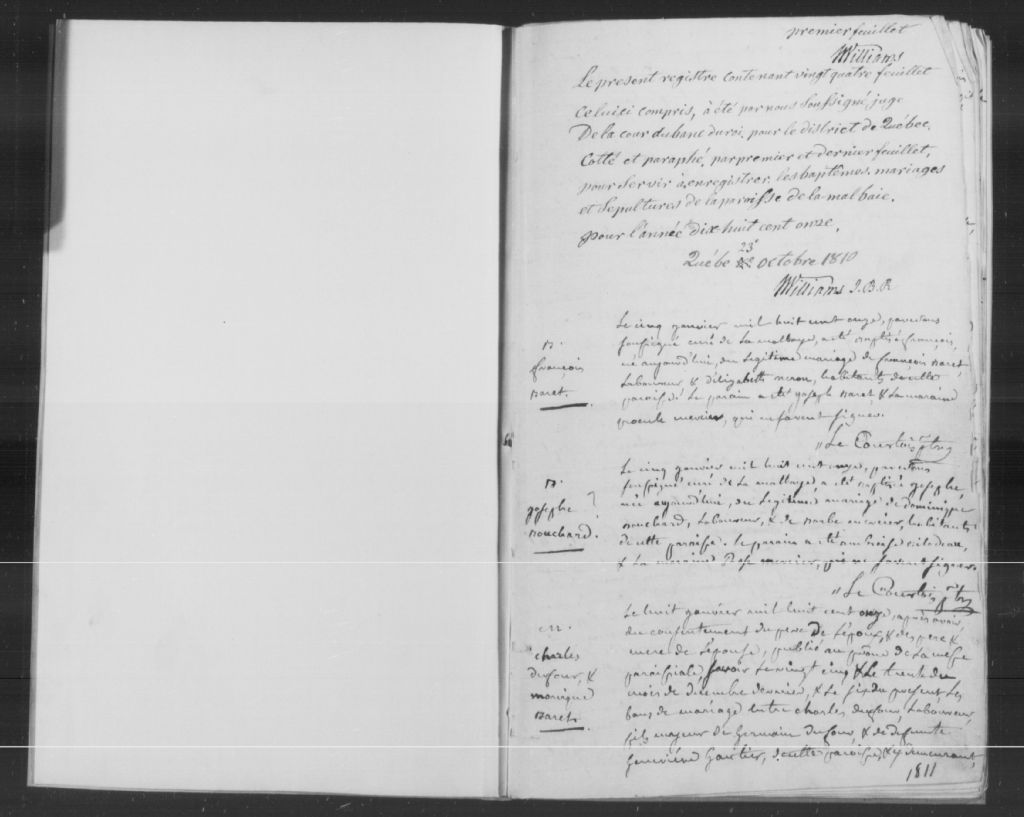 premier feuillet
Williams
Le present registre contenant vingt quatre feuillet
Celuici compris, à été par nous Soussigné juge
De la cour du banc du roi, pour le district de Québec.
Cotté et paraphé, par premier et dernier feuillet,
pour Servir à enregistrer les baptêmes, mariages
et Sepultures de la paroisse de la malbaie.
pour l'année dix huit cent onze.
23e
Québe octobre 1810
Williams J.B.R
B.
françois
Baret.
Le cinq janvier mil huit cent onze, par nous
soussigné curé de La malbaye, a été baptisé françois,
né aujourd'hui, du Legitime mariage de françois Baret,
Laboureur & d'élizabeth neron, habitants de cette
paroisse. Le parain a été joseph Baret & La maraine
mercier, qui ne savent signer.
Le Courtois ptre
B.
josephe
Bouchard.
Le cinq janvier mil huit cent onze, par nous
soussigné curé de La malbaye, a été baptisé josephe,
née aujourd'hui, du Legitime mariage de dominique
Bouchard, Laboureur, & de Barbe mercier, habitants
de cette paroisse. le parain a été ambroise
& La maraine Rose mercier, qui ne savent signer.
Le Courtois ptre
M.
charles
dufour, &
monique
Baret.
Le huit janvier mil huit cent onze, après avoir,
du consentement du pere De L'époux, & des pere &
mere de L'épouse, publié au prône de La messe
paroissiale, savoir Le vingt cinq & Le trente du
mois de décembre dernier, & Le six du présent, Les
bans de mariage entre charles dufour, Laboureur,
fils majeur de Germain dufour, & de defunte
Geneviéve Gautier, de cette paroisse, & y demeurant,
1811